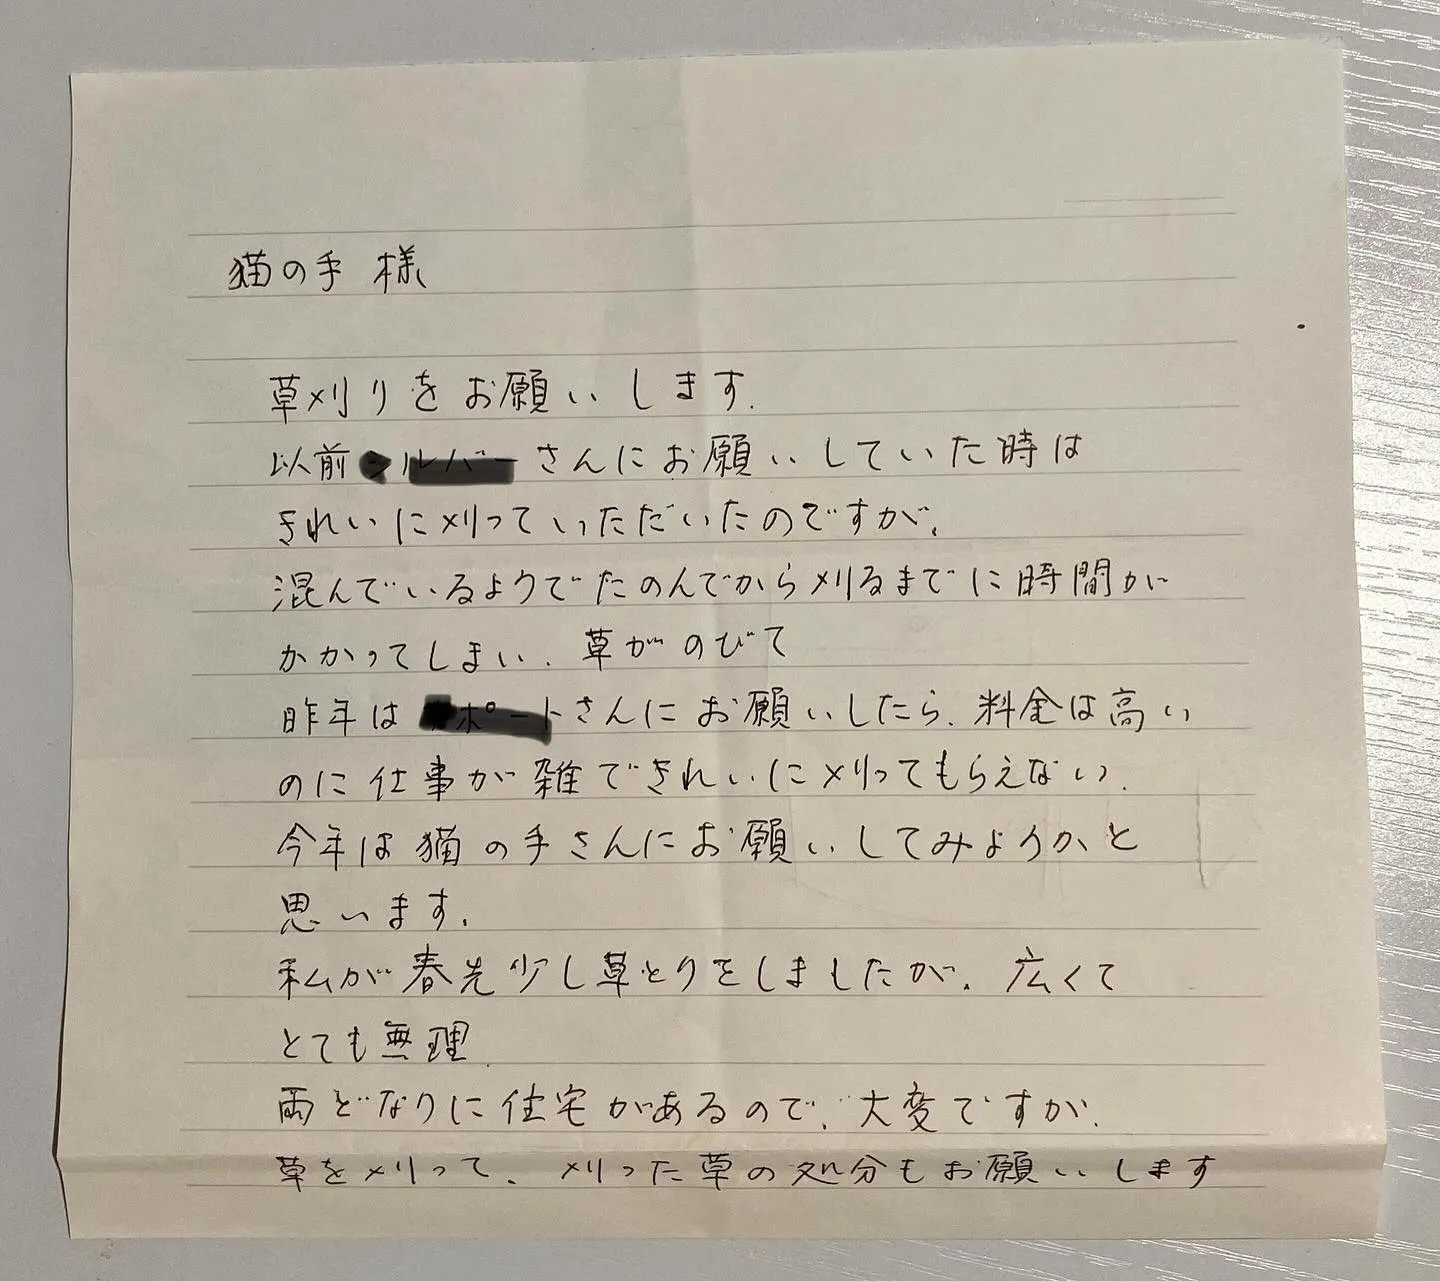 猫の手 様
草刈りをお願いします.
以前シルバーさんにお願いしていた時は
きれいに刈っていただいたのですが、
混んでいるようでたのんでから刈るまでに時間が
かかってしまい、草がのびて
昨年は ポートさんにお願いしたら、料金は高い
のに仕事が雑できれいに刈ってもらえない.
今年は猫の手さんにお願いしてみようかと
思います.
私が春先少し草とりをしましたが、広くて
とても無理
両どなりに住宅があるので、大変ですが、
草を刈って、刈った草の処分もお願いします